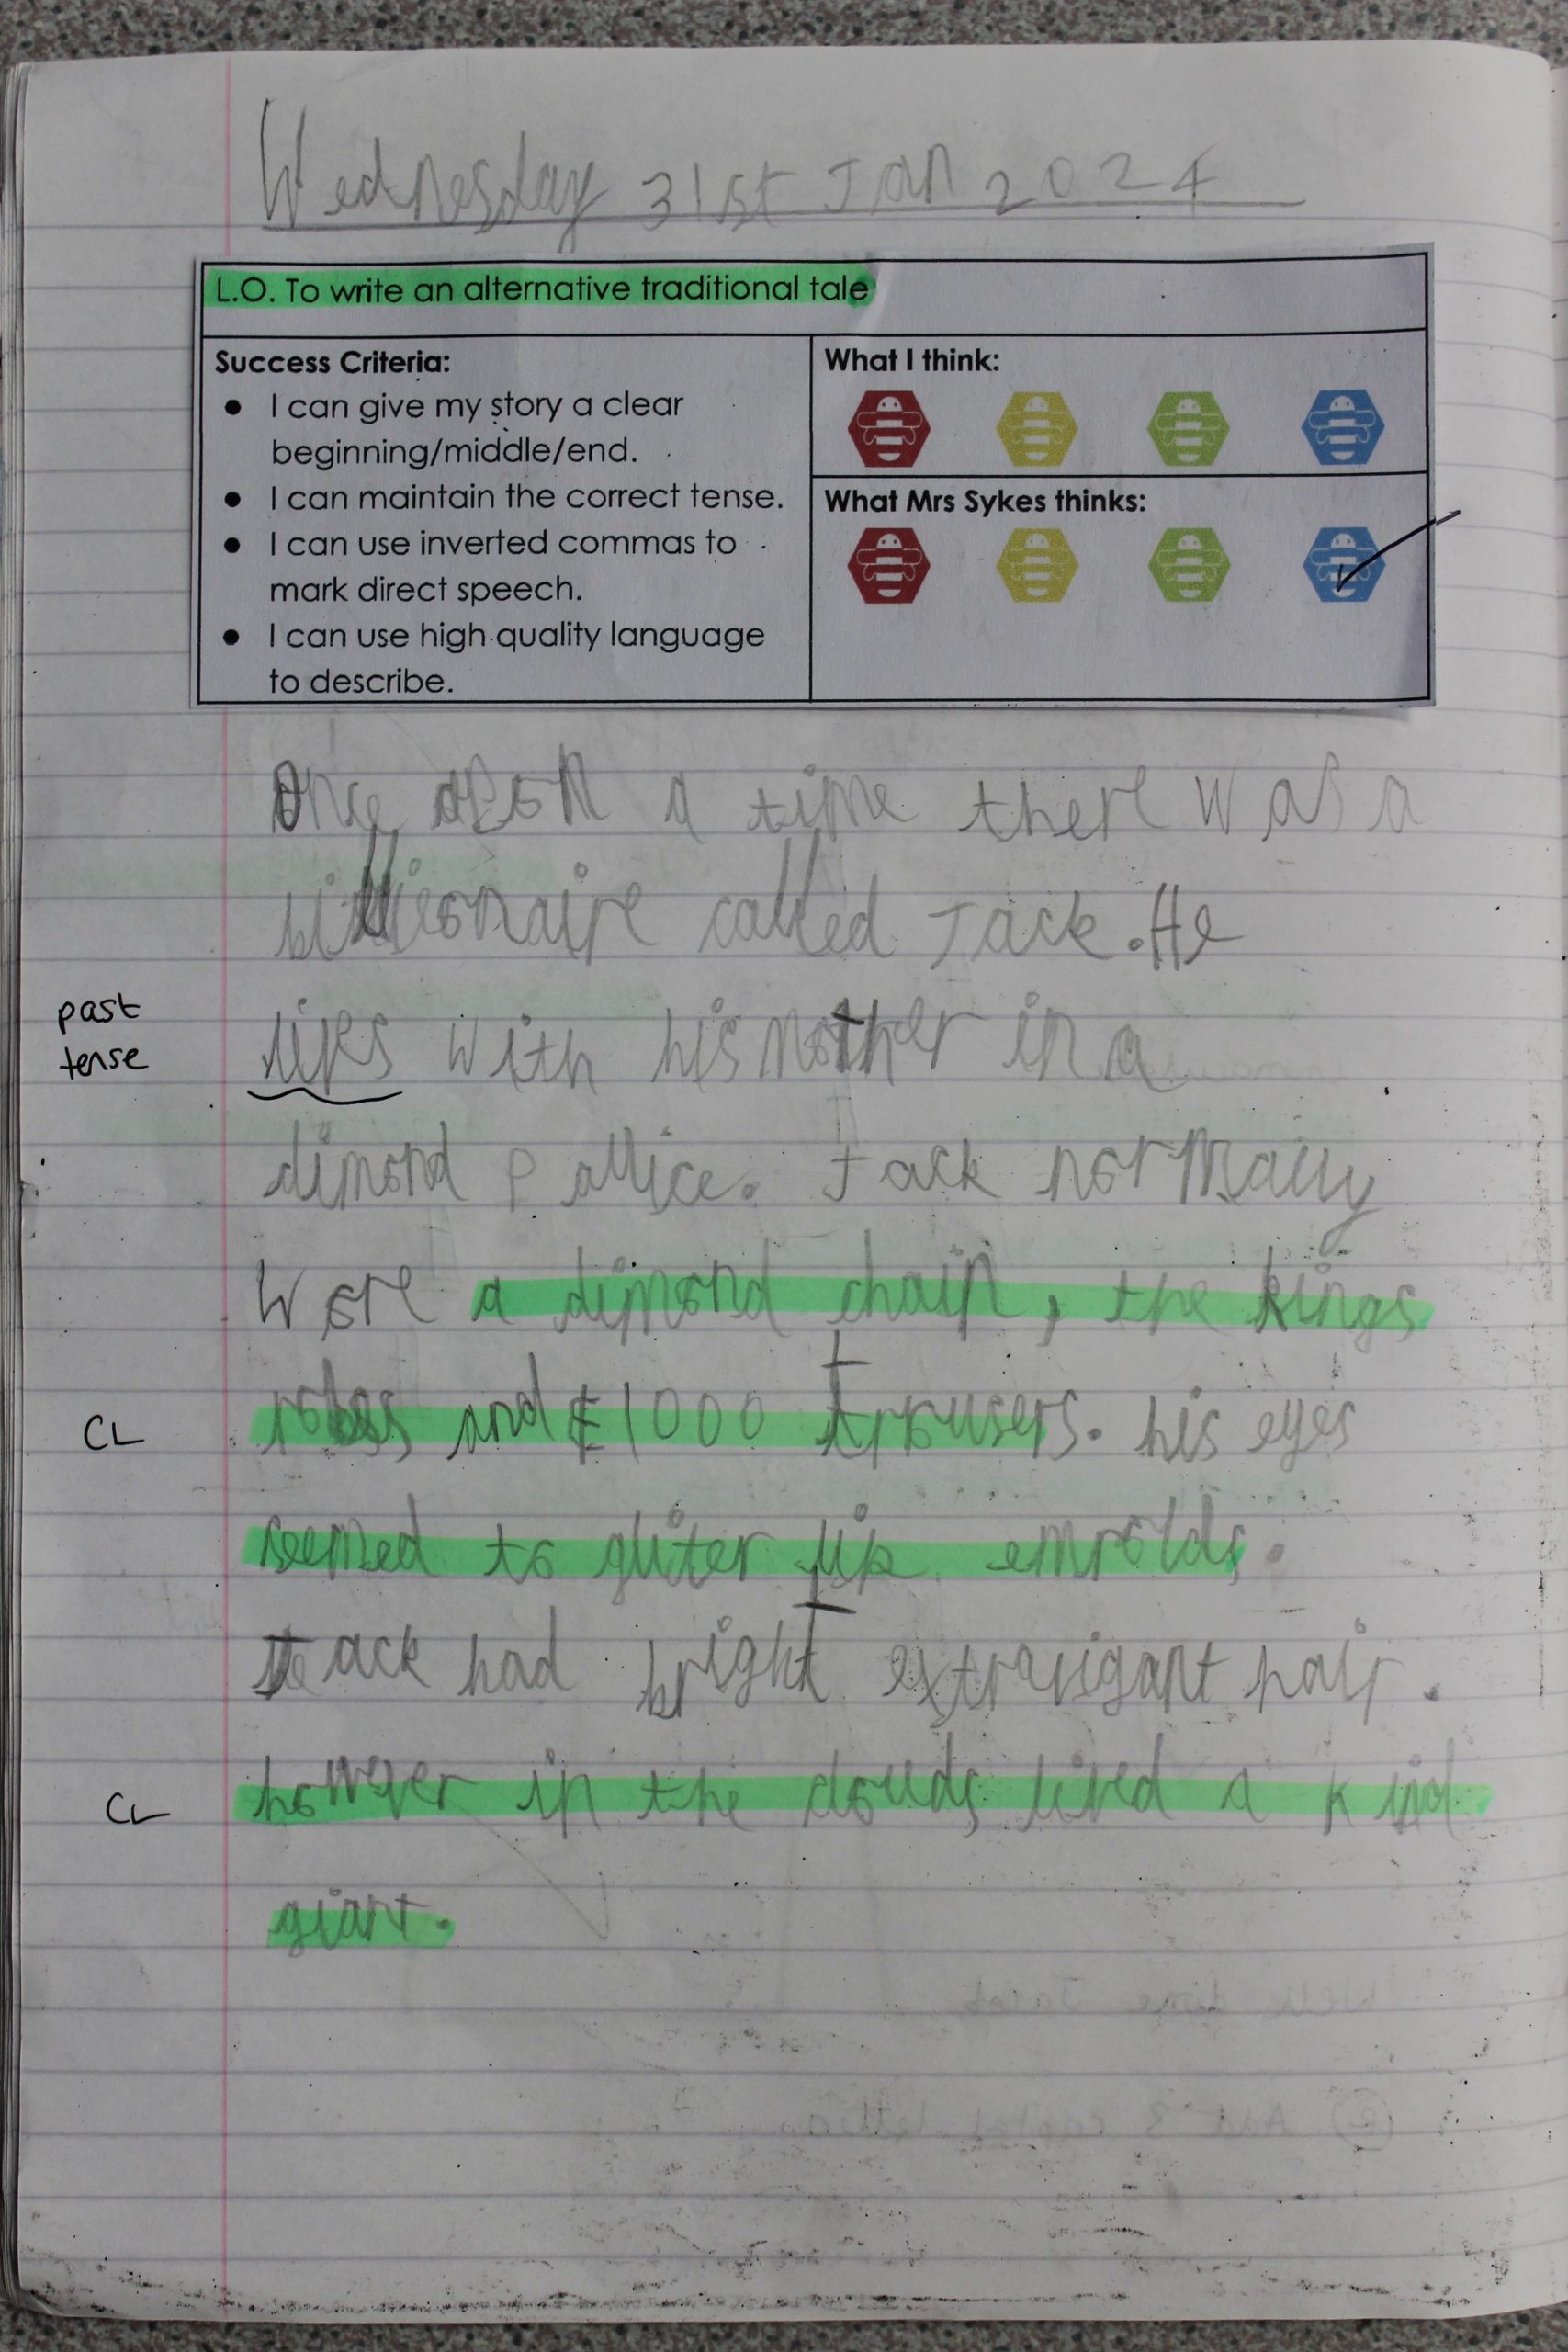 Wednesday 31st Jan 2024
L.O. To write an alternative traditional tale
Success Criteria:
● I can give my story a clear
beginning/middle/end.
● I can maintain the correct tense.
● I can use inverted commas to
mark direct speech.
● I can use high quality language
to describe.
What I think:
What Mrs Sykes thinks:
Once apon a time there was a
billieonaire called Jack. He
past
tense
lives with his mother in a
dimond pallice. Jack normally
wore a dimond chain, the kings
CL
robes and £1000 trousers. his eyes
seemed to gliter lik emrolds.
Jack had bright extravigant hair.
CL
however in the clouds lived a kind
giant.